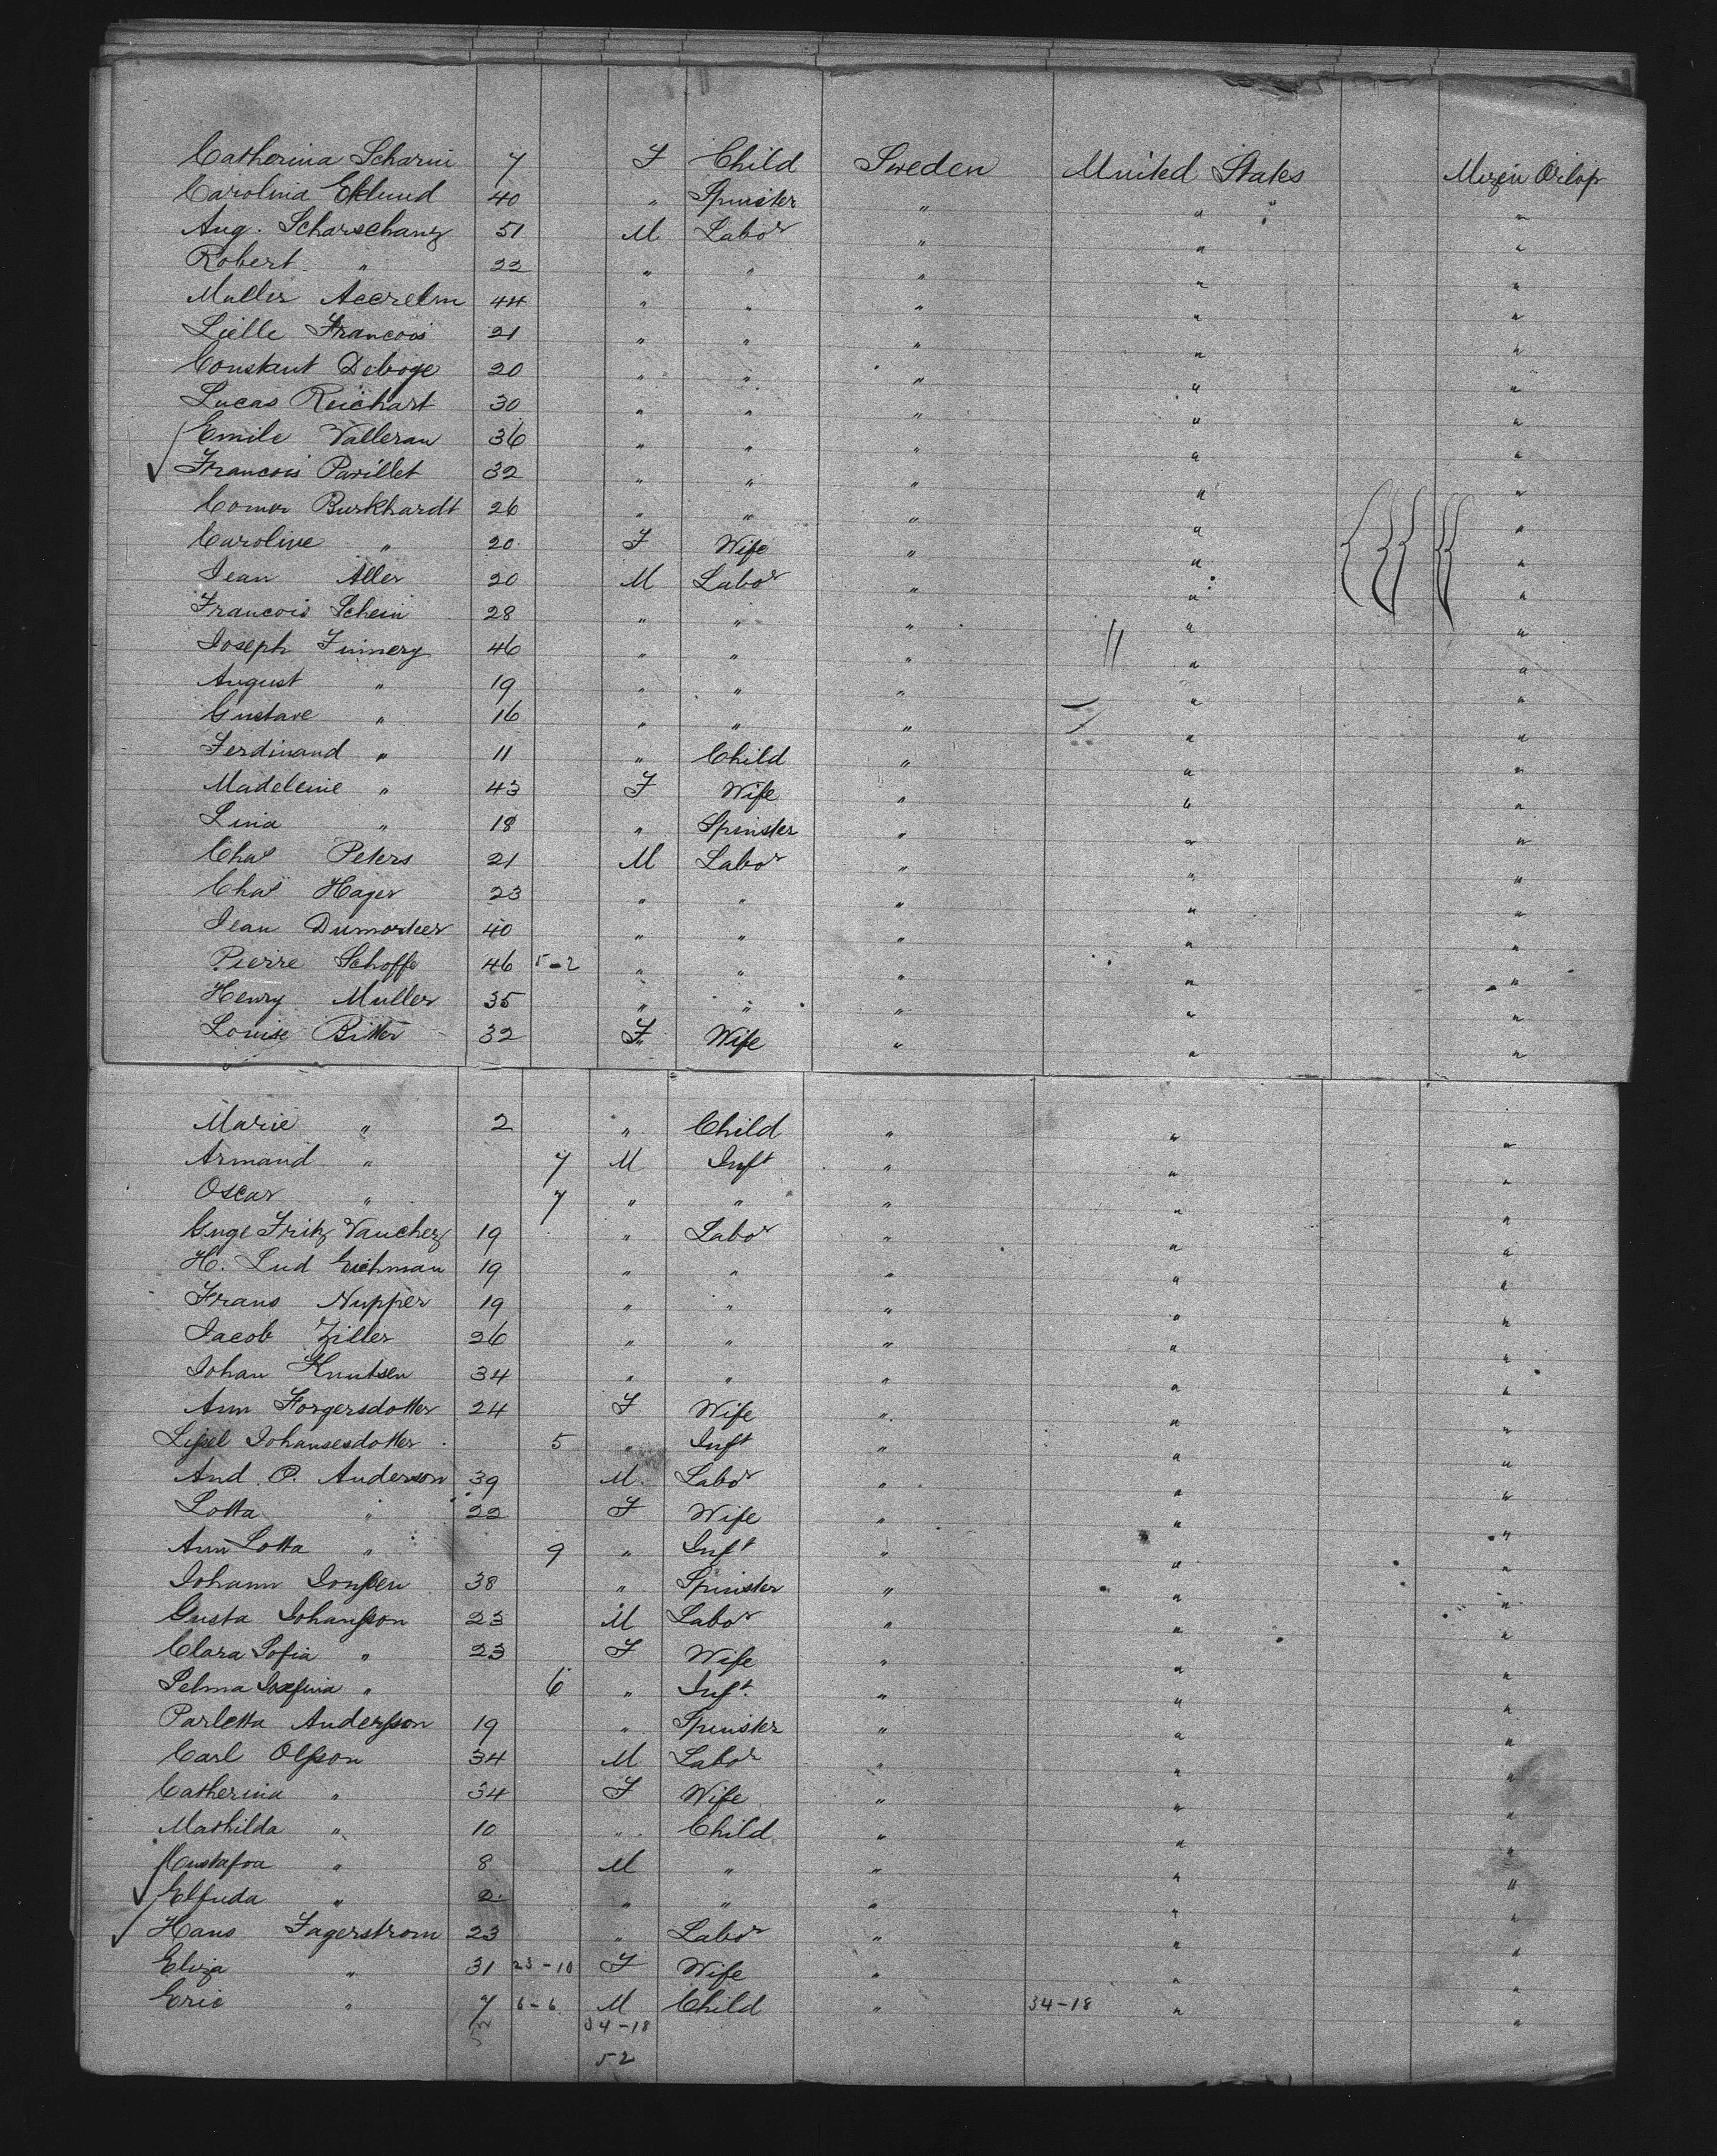 Catherina Scharin 7 F Child Sweden United States Mizen Orlop
Carolina Eklund 40 " Spinster " " "
Aug. Scharschanz 51 M Labor " " "
Robert " 22 " " " " "
Muller 44 " " " " "
Lielle Francois 21 " " " " "
Constant Deboge 20 " " " " "
Lucas Reichart 30 " " " " "
Emile Valleran 36 " " " " "
Francois Parillet 32 " " " " "
Burkhardt 26 " " " " "
Caroline " 20 F Wife " " "
Jean Aller 20 M Labor " " "
Francois Schein 28 " " " " "
Joseph Finnery 46 " " " " "
August " 19 " " " " "
Gustave " 16 " " " " "
Ferdinand " 11 " Child " " "
Madeleine " 43 F Wife " " "
Lina " 18 " Spinster " " "
Chas Peters 21 M Labor " " "
Chas Hager 23 " " " " "
Jean Dumortier 40 " " " " "
Pierre Schoffe 46 5-2 " " " " "
Henry Muller 35 " " " " "
Louise Bitter 32 F Wife " " "
Marie " 2 " Child " " "
Armand " 7 M Inft " " "
Oscar " 7 " " " " "
Fritz Vauchez 19 " Labor " " "
H. Lud Eichman 19 " " " " "
Frans Nupper 19 " " " " "
Jacob Ziller 26 " " " " "
Johan Knutsen 34 " " " " "
Ann Forgersdotter 24 F Wife " " "
Johansesdotter 5 " Inft " " "
And. P. Anderson 39 M. Labor " " "
Lotta " 22 F Wife " " "
Ann Lotta " 9 " Inft " " "
Johann Jonssen 38 " Spinster " " "
Gusta Johansson 23 M Labor " " "
Clara Sofia " 23 F Wife " " "
Selma Josefina " 6 " Inft. " " "
Parletta Andersson 19 " Spinster " " "
Carl Olsson 34 M Labor " " "
Catherina " 34 F Wife " " "
Mathilda " 10 " Child " " "
" 8 M " " " "
Elfuda " 2 " " " " "
Hans Fagerstrom 23 " Labor " " "
Eliza " 31 23-10 F Wife " " "
Eric " 7 6-6 M Child " 34-18 " "
34-18
52